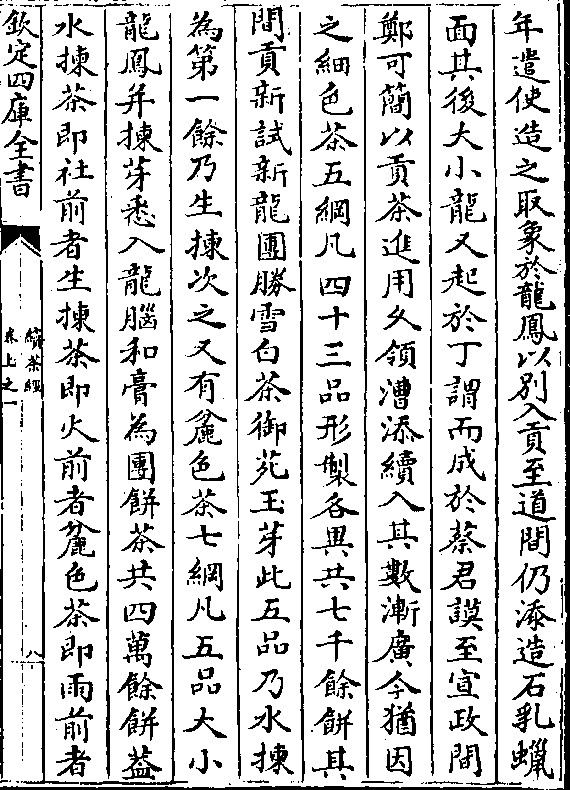 年遣使造之取象於龍鳳以别入貢至道間仍添造石乳蠟
面其後大小龍又起於丁謂而成於蔡君謨至宣政間
鄭可簡以貢茶進用久領漕添續入其數漸廣今猶因
之細色茶五綱凡四十三品形製各異共七千餘餅其
間貢新試新龍團勝雪白茶御苑玉芽此五品乃水揀
為第一餘乃生揀次之又有麄色茶七綱凡五品大小
龍鳳并揀芽悉入龍腦和膏為團餅茶共四萬餘餅葢
水揀茶即社前者生揀茶即火前者麄色茶即雨前者
欽定四庫全書
續茶經
卷上之一
八